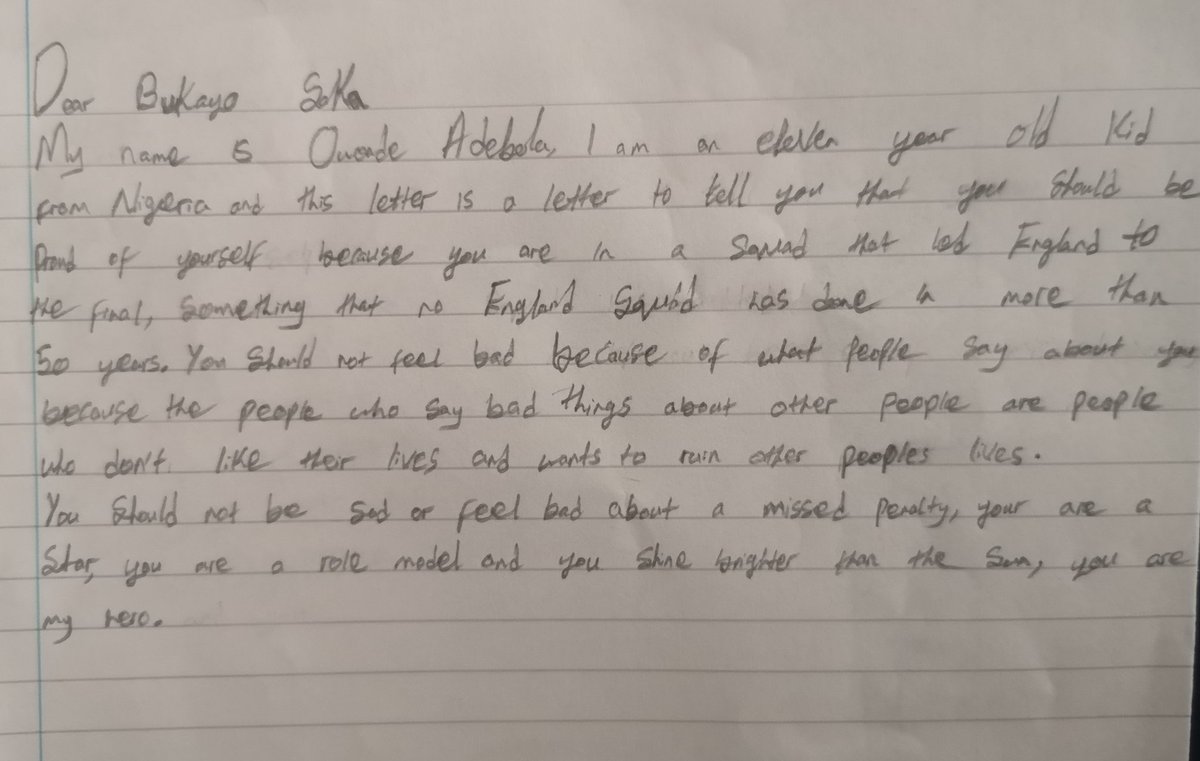 Dear Bukayo Saka
My name is Owoade Adebola, I am an eleven year old kid
from Nigeria and this letter is a letter to tell you that you should be
Proud of yourself because you are in a Squad that led England to
the final, something that no England Squad has done in more than
50 years. You should not feel bad because of what people say about you
because the people who say bad things about other people are people
who don't like their lives and wants to ruin other peoples lives.
You should not be sad or feel bad about a missed penalty, your are a
Star, you are a role model and you shine brighter than the Sun, you are
my hero.